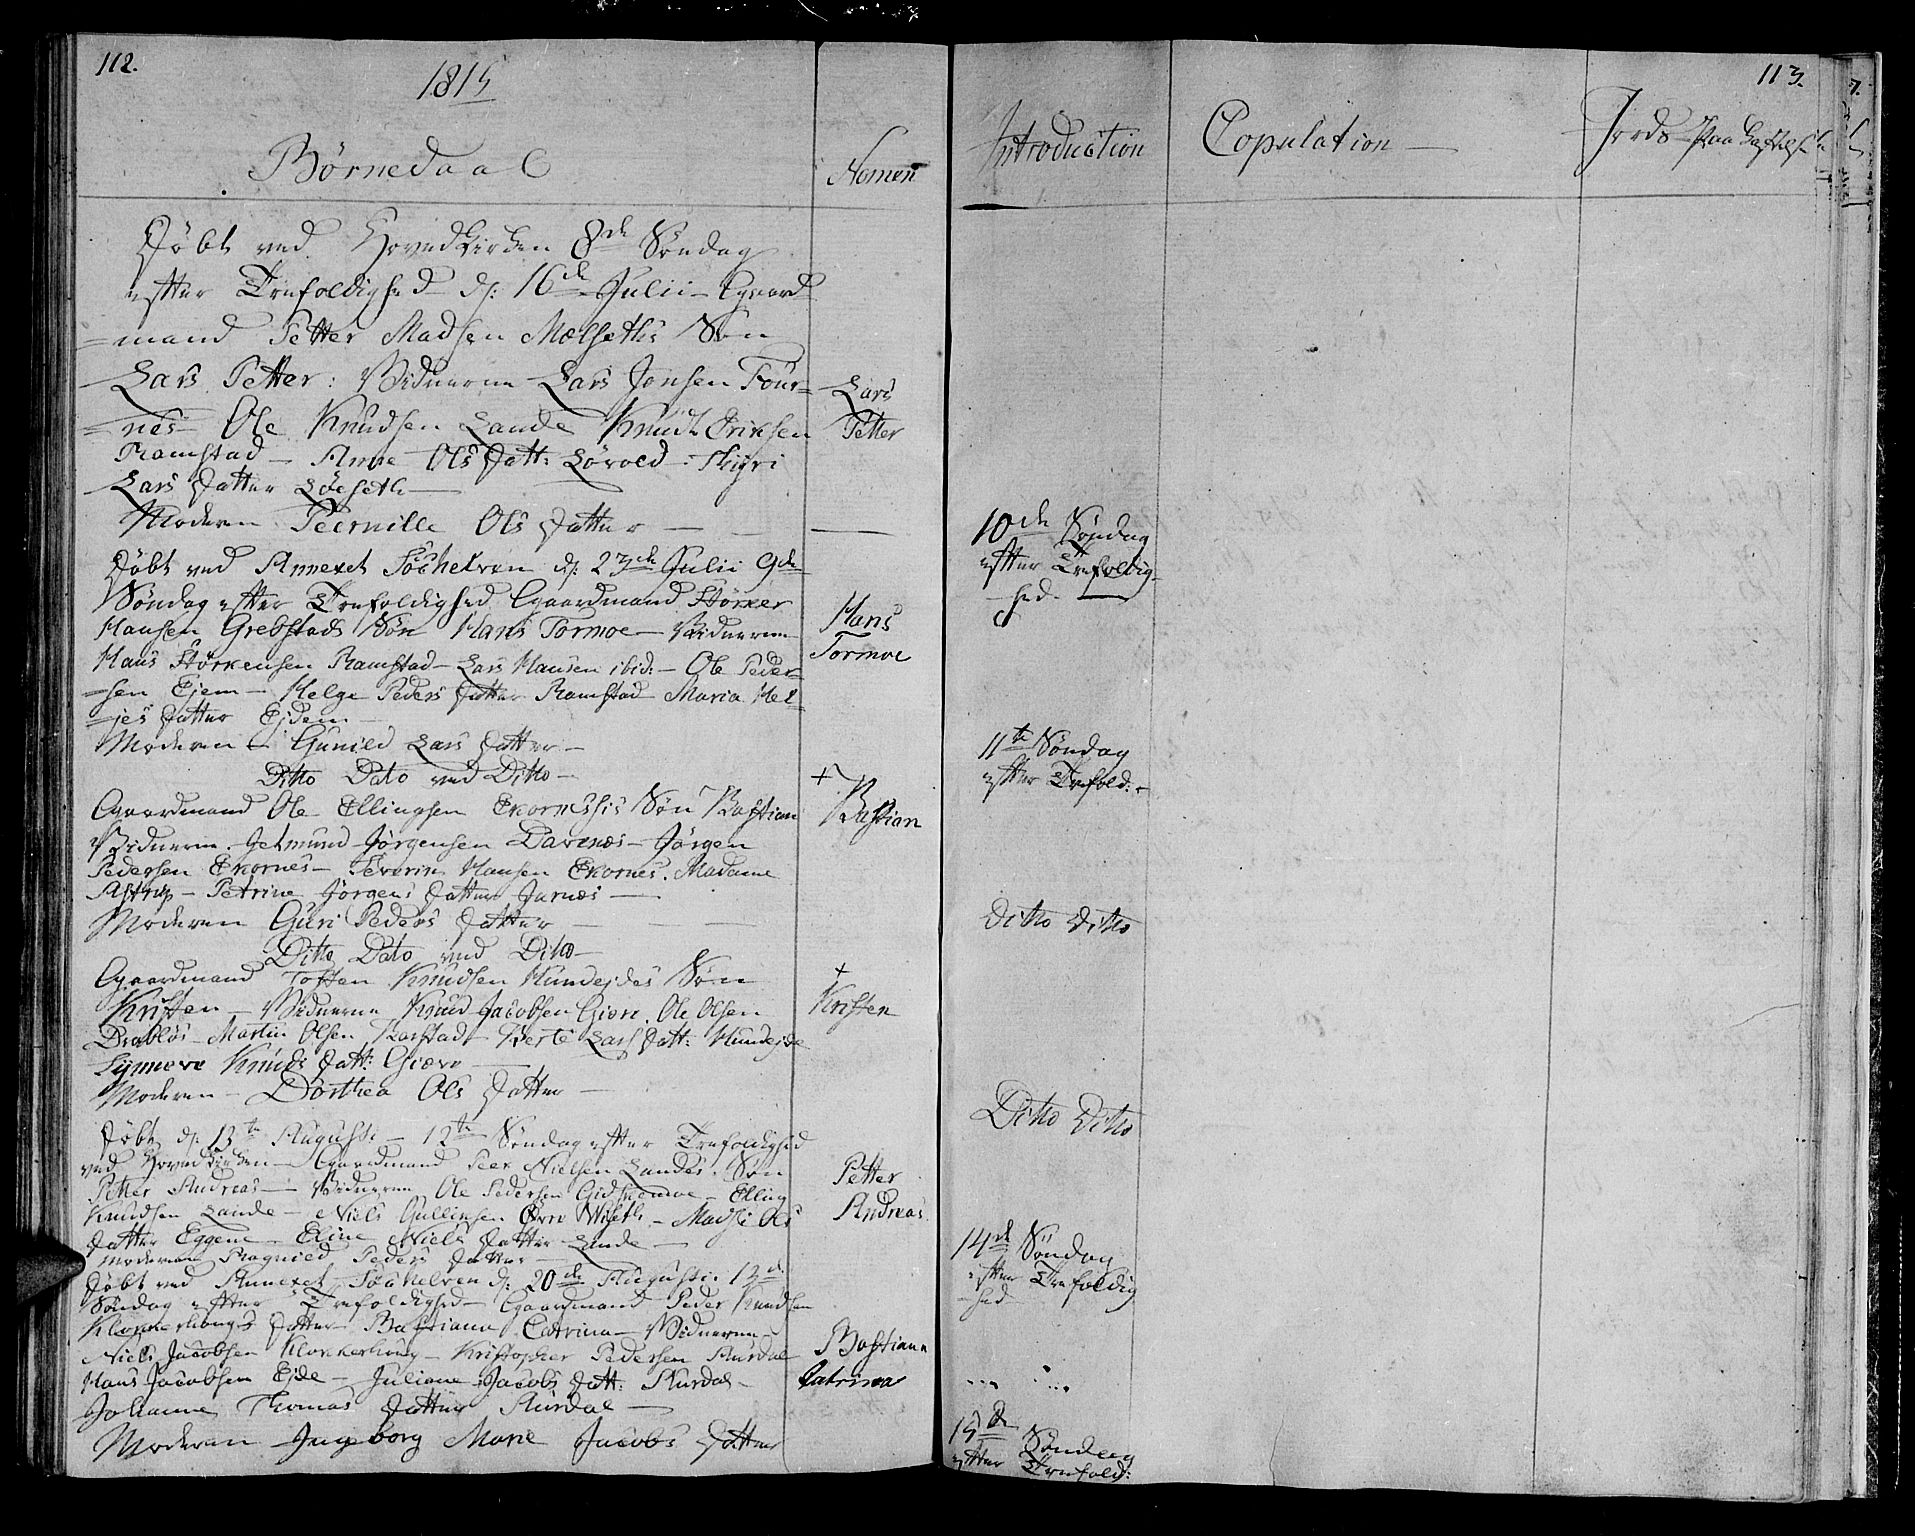 112.
1815
Børnedaab
Nomen
Døbt ved Hovedkirken 8de Søndag
efter Trefoldighed d: 16de Julii - Gaard
=mand Petter Madsen Mælsæths Søn
Lars Petter: Vidnerne Lars Jonsen Tour=
=nes - Ole Knudsen Lande Knudt Eriksen
Ramstad - Anne Ols Datt: Løvold -
Lars Datter Løeseth -
Moderen Peernille Ols Datter -
Lars
Petter
Døbt ved Annexet d: 23de Julii 9de
Søndag efter Trefoldighed Gaardmand Størker
Hansen Grebstads Søn Hans Tormoe - Vidnerne
Hans Størkensen Ramstad - Lars Hansen ibid: - Ole Peder=
=sen Ejem - Helge Peders Datter Ramstad Maria Hel=
=jes Datter Ejdem -
Moderen - Gunild Lars Datter -
Hans
Tormoe
Ditto Dato ved Ditto -
Gaardmand Ole Ellingsen Ekornesses Søn Bastian
Vidnerne Jetmund Jørgensen Davenæs - Jørgen
Pedersen Ekornes - Severin Hansen Ekornes. Madame
Astrup - Petrine Jørgens Datter Jarnæs -
Moderen Guri Peders Datter -
+
Bastian
Ditto Dato ved Ditto -
Gaardmand Toften Knudsen Hundejdes Søn
Kristen - Vidnerne Knud Jacobsen Giære. Ole Olsen
Drabløs - Martin Olsen - Berte Lars Datt: Hundejde
Synneve Knuds Datt: Giære -
Moderen - Dorthea Ols Datter -
+
Kristen
Døbt d: 13te Augusti - 12te Søndag efter Trefoldighed
ved Hovedkirken - Gaardmand Peer Nielsen Landes Søn
Petter Andreas - Vidnerne Ole Pedersen Gidskemoe - Elling
Knudsen Lande - Niels Gullicksen Øvre - Ols
Datter Eggene - Eline Niels Datter Lande -
Moderen Ragnild Peders Datter -
Petter
Andreas
Døbt ved Annexet d: 20de Augusti 13de
Søndag efter Trefoldighed - Gaardmand Peder Knudsen
Klokkerhougs Datter Bastiana Catrina - Vidnerne -
Niels Jacobsen Klokkerhoug - Kristopher Pedersen Aursdal
Hans Jacobsen Ejde - Juliane Jacobs Datt: Aursdal -
Johanne Thomas Datter Aursdal -
Moderen Ingeborg Marie Jacobs Datter
Bastiana
Catrina
113.
Introduction
Copulation -
Jords-Paa
10de Søndag
efter Trefoldig-
hed.
11te Søndag
efter Trefold: -
Ditto Ditto
Ditto Ditto
14de Søndag
efter Trefoldig
hed
15de Søndag
efter Trefold: